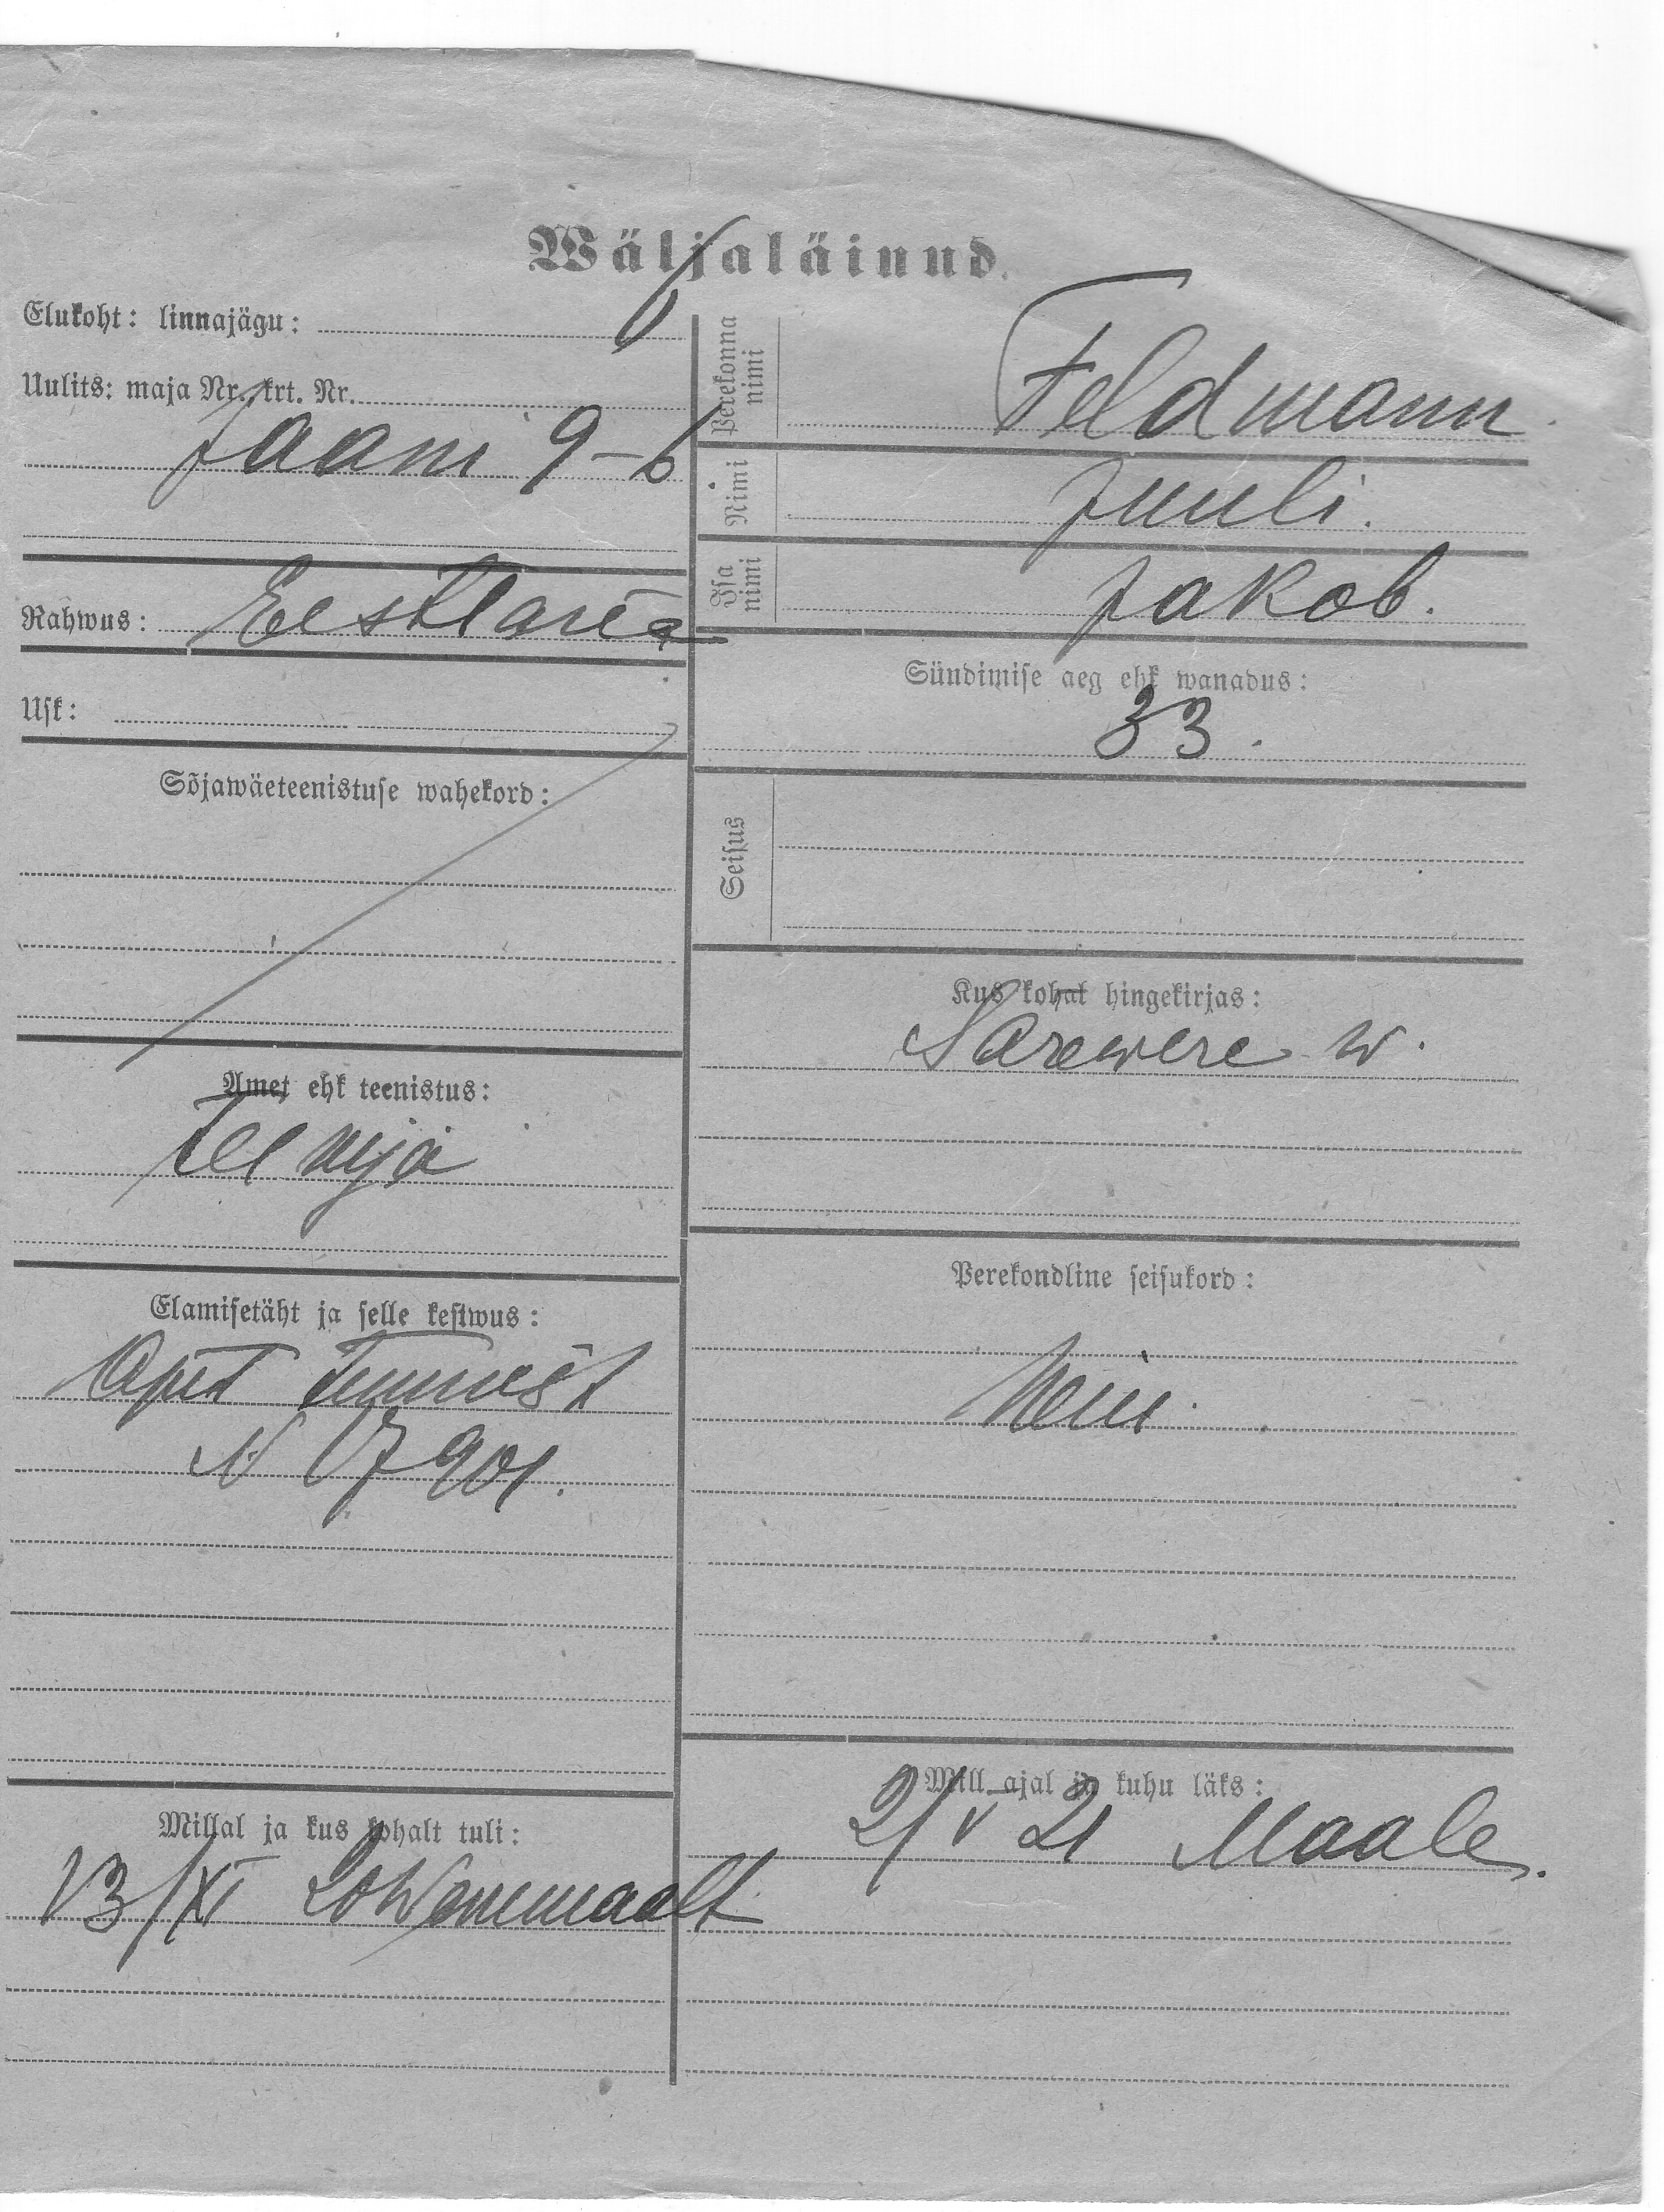 Wäljaläinud.
Elukoht: linnajägu:
Uulits: maja Nr. krt. Nr.
Jaani 9-6
Rahwus: Eestlane
Usk:
Sõjawäeteenistuse wahekord:
Amet ehk teenistus:
Teenija
Elamisetäht ja selle kestwus:
N 17901.
Millal ja kus kohalt tuli:
13/XI 20 Wenemaalt
Perekonna nimi
Feldmann
Nimi
Juuli.
Isa nimi
Jakob.
Sündimise aeg ehk wanadus:
33.
Seisus
Kus kohal hingekirjas:
Särewere w.
Perekondline seisukord:
Mill ajal ja kuhu läks:
2/V 21 Maale.